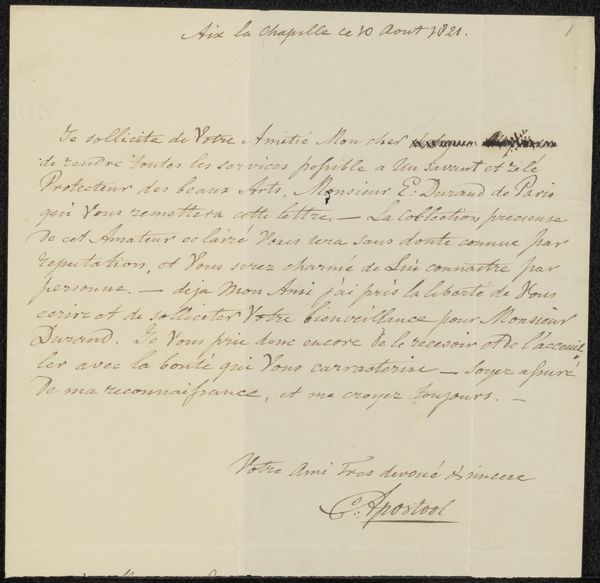 Aix la Chapelle ce 10 Aout 1821.
Je sollicite de Votre Amitié Mon cher
de rendre toutes les services possible a Un savant et zelé
Protecteur des beaux Arts, Monsieur E: Durand de Paris
qui Vous remettera cette lettre. — La Collection precieuse
de cet Amateur eclairé Vous sera sans doute connue par
reputation, et Vous serez charmé de Lui connaitre par
personne. — deja Mon Ami j'ai pris la liberté de Vous
ecrire et de solliciter Votre bienveillance pour Monsieur
Durand. Je Vous prie donc encore de le recevoir et de l'acceuil
ler avec la bonté qui Vous carracterise — soyez assuré
de ma reconnaissance, et me croyez toujours. —
Votre Ami Tres devoué & sincere
C: Apostool